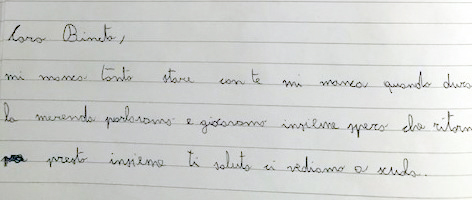 Cara Bineta,
mi manca tanto stare con te mi manca quando dura
la merenda parlavamo e giocavamo insieme spero che ritorn
presto insieme ti saluto ci vediamo a scuola.